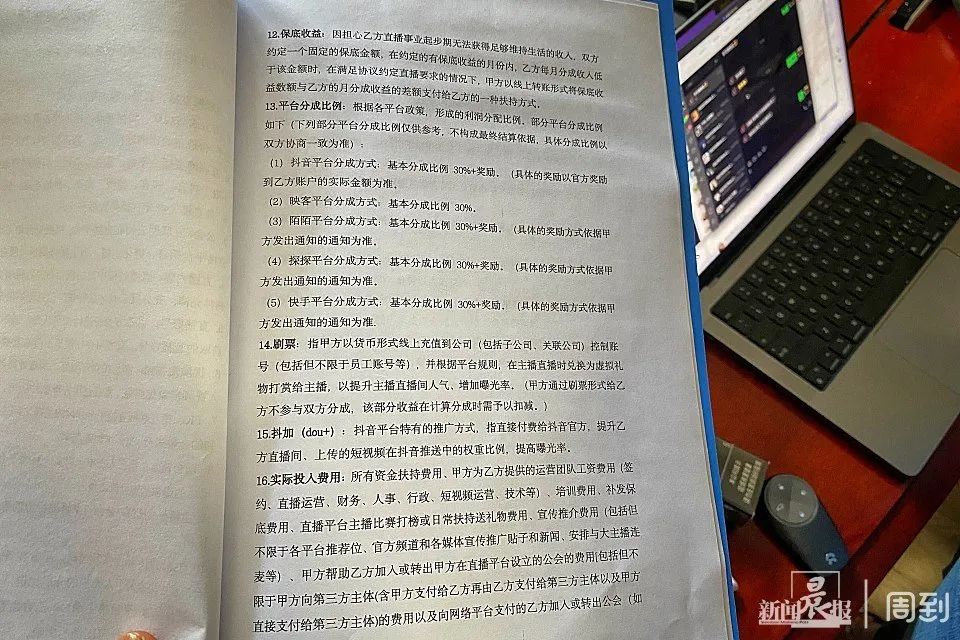 12.保底收益：因担心乙方直播事业起步期无法获得足够维持生活的收入，双方
约定一个固定的保底金额，在约定的有保底收益的月份内，乙方每月分成收入低
于该金额时，在满足协议约定直播要求的情况下，甲方以线上转账形式将保底收
益数额与乙方的月分成收益的差额支付给乙方的一种扶持方式。
13.平台分成比例：根据各平台政策，形成的利润分配比例，部分平台分成比例
如下（下列部分平台分成比例仅供参考，不构成最终结算依据，具体分成比例以
双方协商一致为准）：
（1）抖音平台分成方式：基本分成比例 30%+奖励。（具体的奖励以官方奖励
到乙方账户的实际金额为准。
（2）映客平台分成方式：基本分成比例 30%。
（3）陌陌平台分成方式：基本分成比例 30%+奖励。（具体的奖励方式依据甲
方发出通知的通知为准。
（4）探探平台分成方式：基本分成比例 30%+奖励。（具体的奖励方式依据甲
方发出通知的通知为准。
（5）快手平台分成方式：基本分成比例 30%+奖励。（具体的奖励方式依据甲
方发出通知的通知为准.
14.刷票：指甲方以货币形式线上充值到公司（包括子公司、关联公司）控制账
号（包括但不限于员工账号等），并根据平台规则，在主播直播时兑换为虚拟礼
物打赏给主播，以提升主播直播间人气、增加曝光率。（甲方通过刷票形式给乙
方不参与双方分成，该部分收益在计算分成时需予以扣减。）
15.抖加（dou+）：抖音平台特有的推广方式，指直接付费给抖音官方，提升乙
方直播间、上传的短视频在抖音推送中的权重比例，提高曝光率。
16.实际投入费用：所有资金扶持费用、甲方为乙方提供的运营团队工资费用（签
约、直播运营、财务、人事、行政、短视频运营、技术等）、培训费用、补发保
底费用、直播平台主播比赛打榜或日常扶持送礼物费用、宣传推介费用（包括但
不限于各平台推荐位、官方频道和各媒体宣传推广贴子和新闻、安排与大主播连
麦等）、甲方帮助乙方加入或转出甲方在直播平台设立的公会的费用(包括但不
限于甲方向第三方主体(含甲方支付给乙方再由乙方支付给第三方主体以及甲方
直接支付给第三方主体)的费用以及向网络平台支付的乙方加入或转出公会（如
新闻晨报 周到